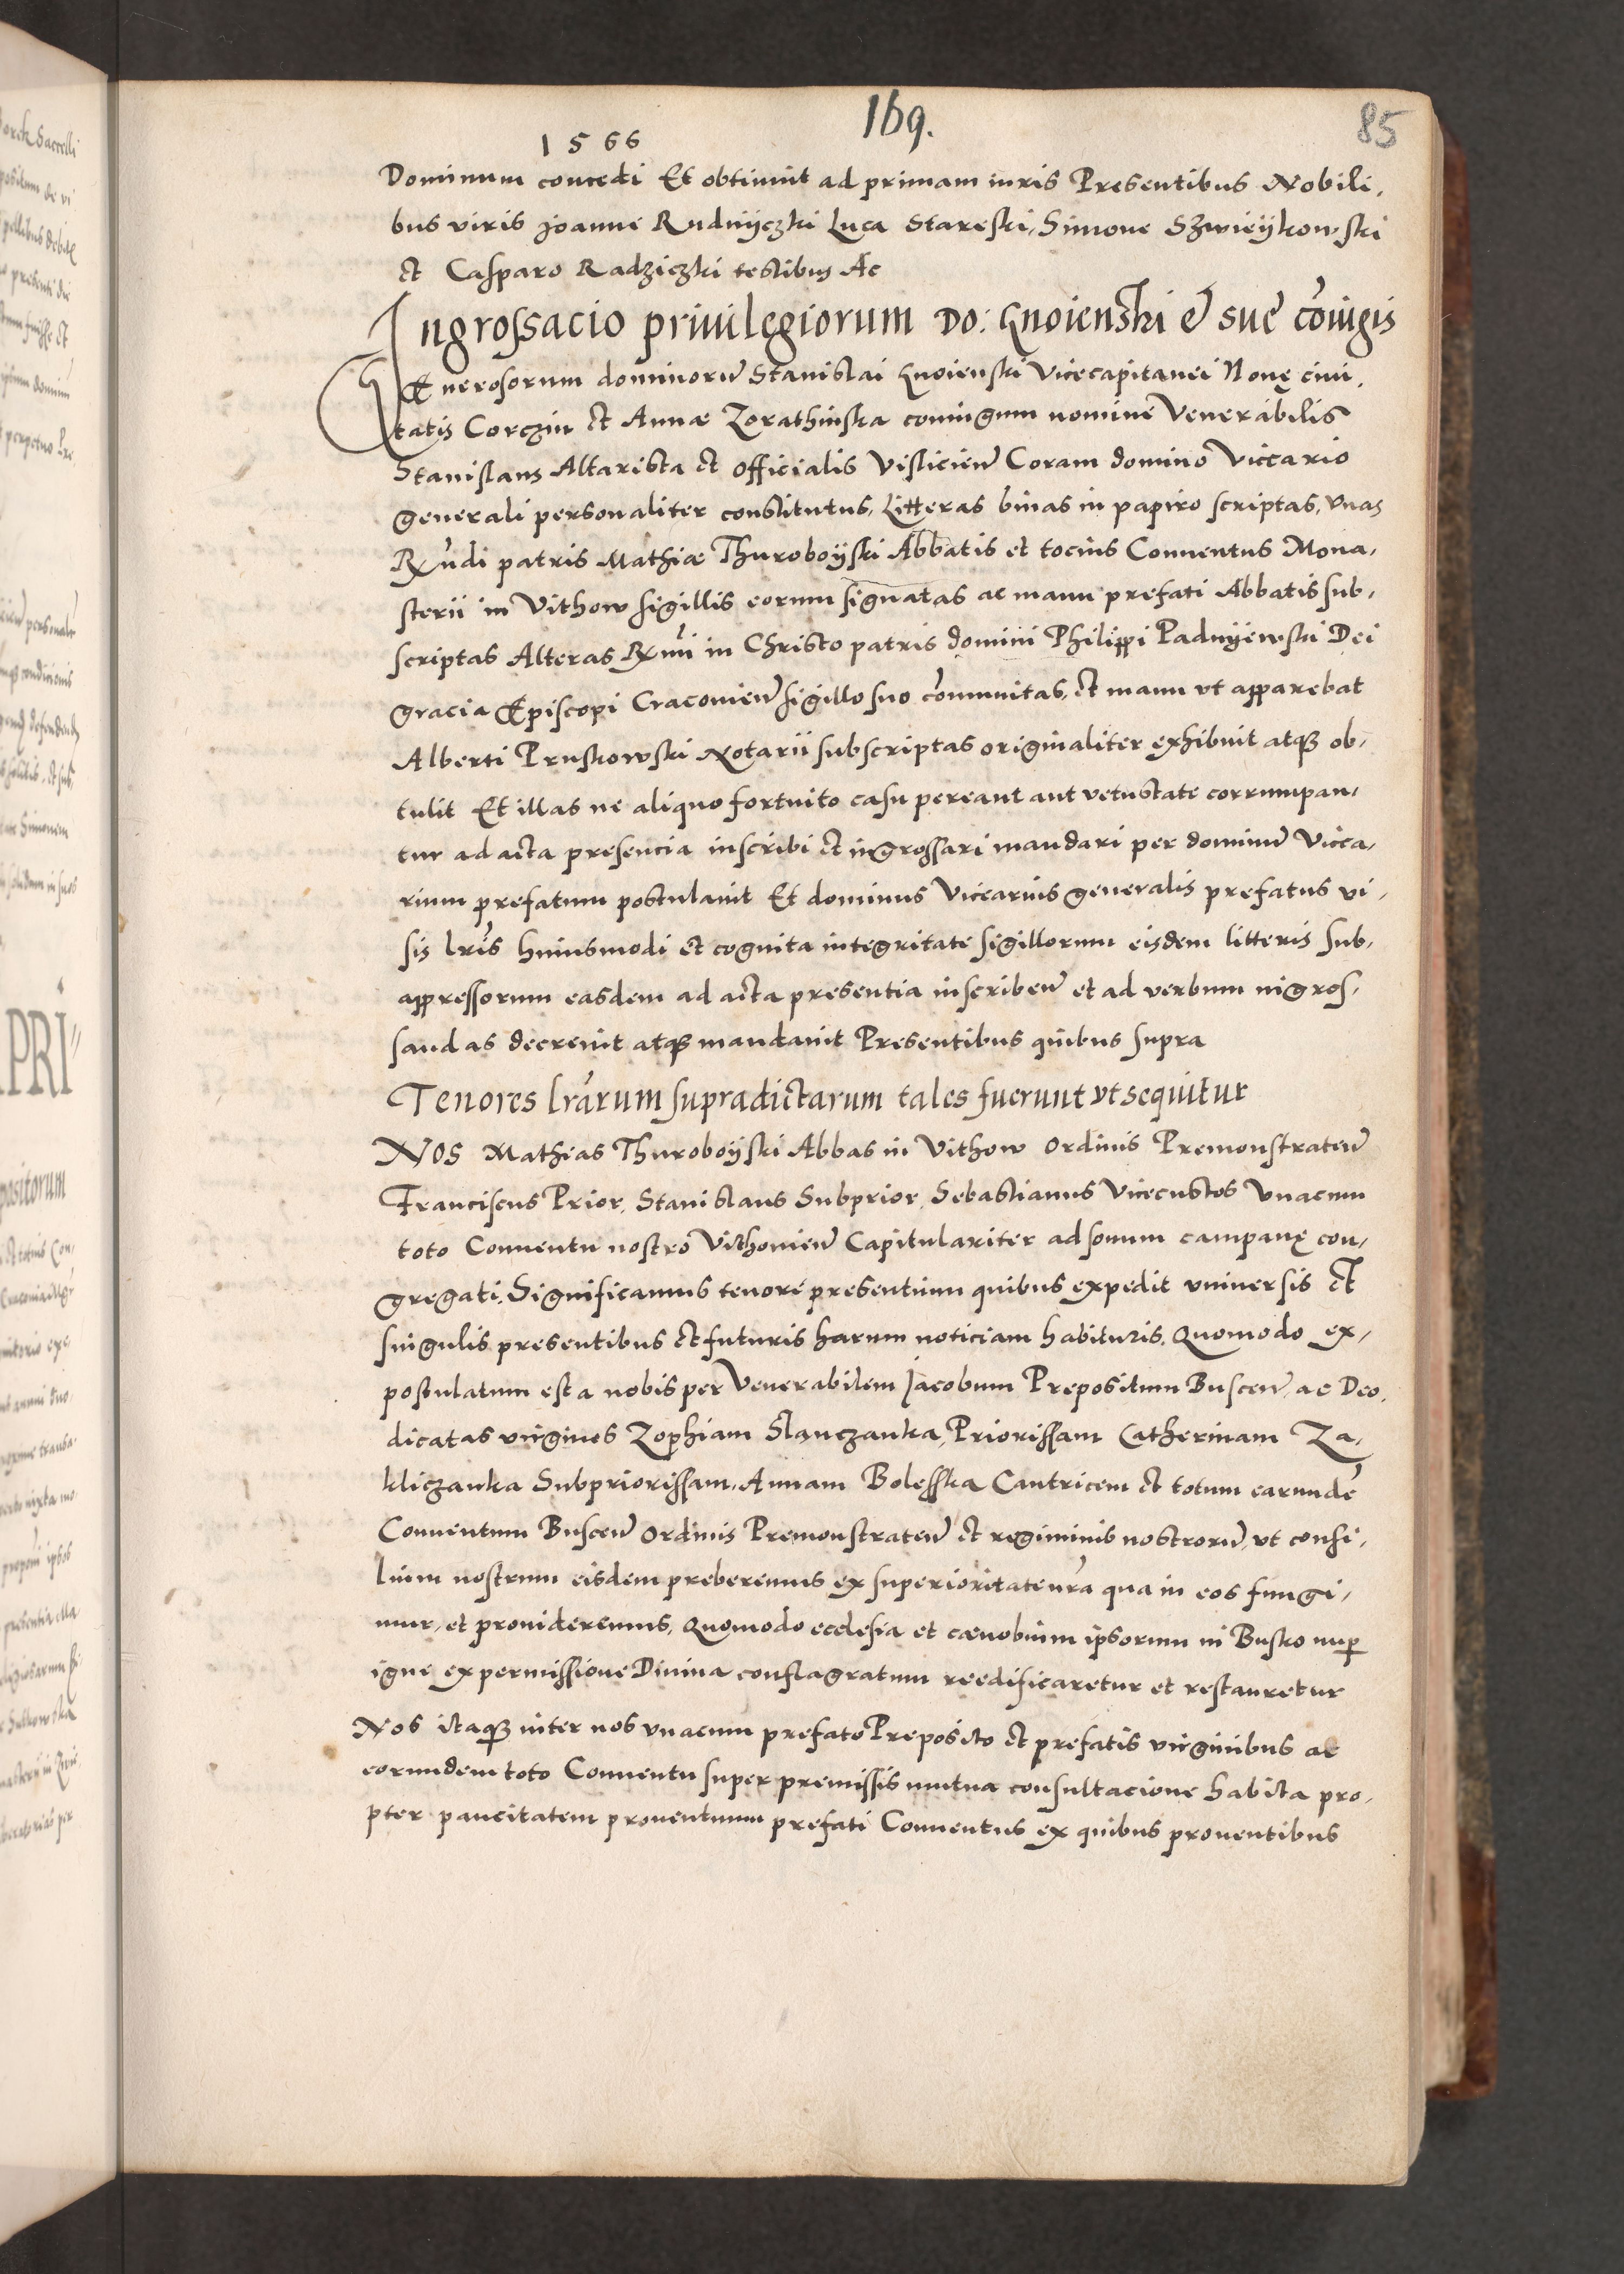 169.
85
1566
Dominum concedi Et obtinuit ad primam iuris Presentibus Nobili,
bus viris Joanne Rudnijczki Luca Stareski, Simone Szwieijkowski
et Casparo Radziczki testibus Ac
Ingrossacio priuilegiorum Do: Gnoienski et sue coniugis
Generosorum dominorum Stanislai Gnoienski Vicecapitanei Nonę ciui,
tatis Corczin et Annæ Zorathinska coniugum nomine Venerabilis
Stanislaus Altarista et officialis Vislicien Coram domino Viccario
generali personaliter constitutus, Litteras binas in papiro scriptas, vnas
Rvndi patris Mathiæ Thuroboijski Abbatis et tocius Conuentus Mona,
sterii in Vithow sigillis eorum signatas ac manu prefati Abbatis sub,
scriptas Alteras Rxmi in Christo patris domini Philippi Padnijewski Dei
gracia Episcopi Cracouien sigillo suo communitas, et manu vt apparebat
Alberti Pruskowski Notarii subscriptas originaliter exhibuit atque ob,
tulit Et illas ne aliquo fortuito casu pereant aut vetustate corrumpan,
tur ad acta presencia inscribi et ingrossari mandari per dominum Vicca,
rium prefatum postulauit Et dominus Vicearius generalis prefatus vi,
sis lris huiusmodi et cognita integritate sigillorum eisdem litteris sub,
appressorum easdem ad acta presentia inscriben et ad verbum ingros,
sandas decreuit atque mandauit Presentibus quibus supra
Tenores lrarum supradictarum tales fuerunt vt sequitur
Nos Mathias Thuroboijski Abbas in Vithow Ordinis Premonstraten
Franciscus Prior, Stanislaus Subprior, Sebastianus Vicecustos Vnacum
toto Conuentu nostro Vithouien Capitulariter ad sonum campanę con,
gregati, Significamus tenore presentium quibus expedit vniuersis et
singulis presentibus et futuris harum noticiam habituris, Quomodo ex,
postulatum est a nobis per Venerabilem Jacobum Prepositum Buscen, ac Deo,
dicatas virgines Zophiam Slanczanka, Priorissam Catherinam Za,
kliczanka Subpriorissam, Annam Bolesska Cantricem et totum earunde
Conuentum Buscen Ordinis Premonstraten et regiminis nostrorum, vt consi,
lium nostrum eisdem preberemus ex superioritate nra qua in eos fungi,
mur, et prouideremus, Quomodo ecclesia et cænobium ipsorum in Busko nup
igne ex permissione Diuina conflagratum reedificaretur et restauretur
Nos itaque inter nos vnacum prefato Preposito et prefatis virginibus ac
eorundem toto Conuentu super premissis mutua consultacione habita pro,
pter paucitatem prouentuum prefati Conuentus ex quibus prouentibus